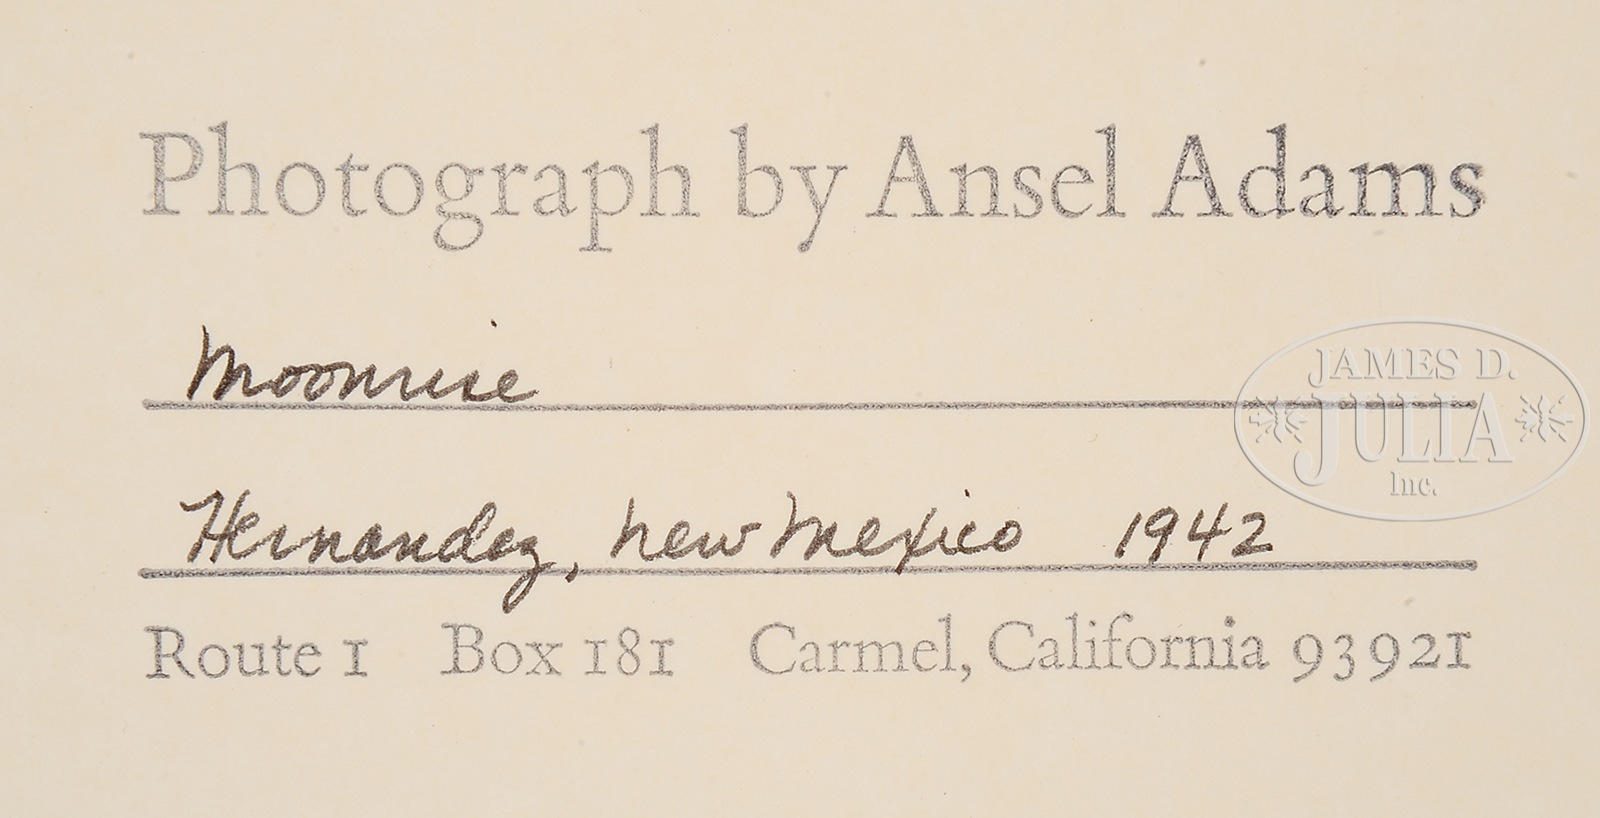 Photograph by Ansel Adams
Moonrise
JAMES D.
JULIA
Inc.
Hernandez, New Mexico 1942
Route 1 Box 181 Carmel, California 93921